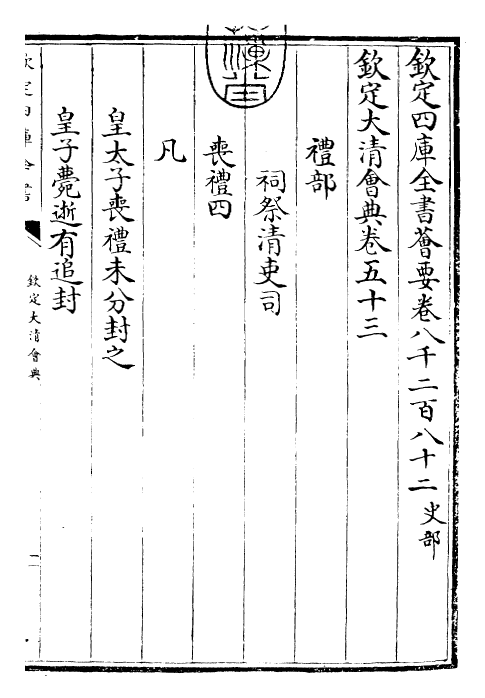 欽定四庫全書薈要卷八千二百八十二 史部
欽定大清會典卷五十三
禮部
祠祭清吏司
喪禮四
凡
皇太子喪禮未分封之
皇子薨逝有追封
欽定大清會典